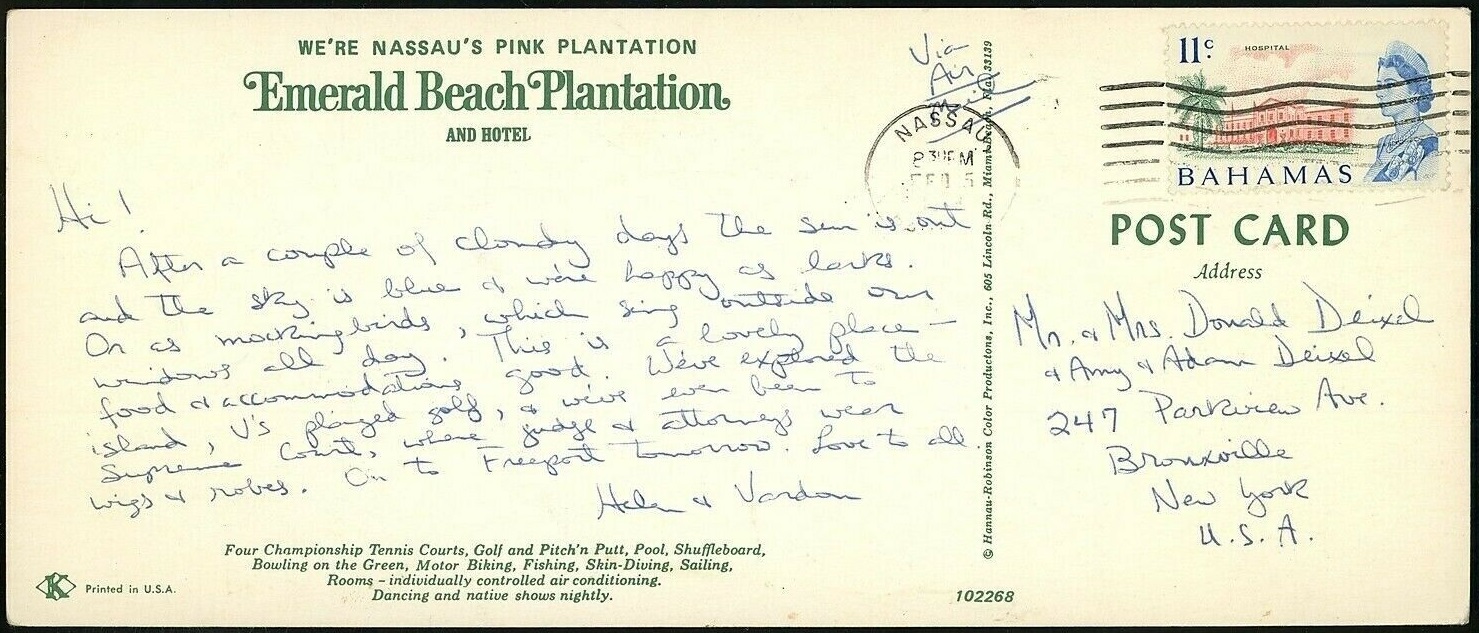 WE'RE NASSAU'S PINK PLANTATION
Emerald Beach Plantation
AND HOTEL
Hi!
After a couple of cloudy days the sun is out
and the sky is blue & we're happy as larks.
Or as mockingbirds, which sing outside our
windows all day. This is a lovely place –
food & accommodations good. We've explored the
island, V's played golf, & we've even been to
Supreme Court, where judge & attorneys wear
wigs & robes. On to Freeport tomorrow. Love to all.
Helen & Vardon
Four Championship Tennis Courts, Golf and Pitch'n Putt, Pool, Shuffleboard,
Bowling on the Green, Motor Biking, Fishing, Skin-Diving, Sailing,
Rooms – individually controlled air conditioning.
Dancing and native shows nightly.
K
Printed in U.S.A.
102268
© Hannau-Robinson Color Productons, Inc., 605 Lincoln Rd., Miami Beach, Fla. 33139
Via
Air
Mail
NASSAU
PM
FEB 5
11c
HOSPITAL
BAHAMAS
POST CARD
Address
Mr. & Mrs. Donald Deixel
& Amy & Adam Deixel
247 Parkview Ave.
Bronxville
New York
U.S.A.